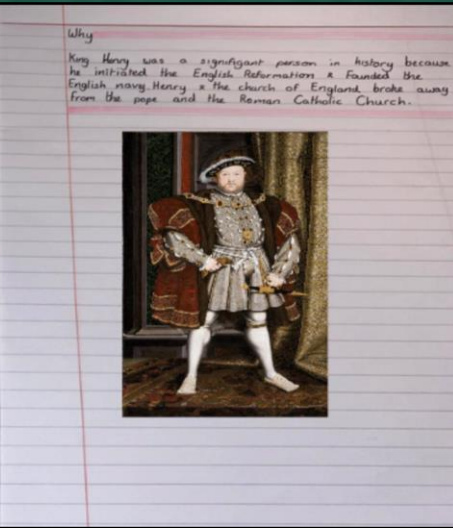 Why
King Henry was a signifigant person in history because
he initiated the English Reformation & Founded the
English navy. Henry & the church of England broke away
from the pope and the Roman Catholic Church.